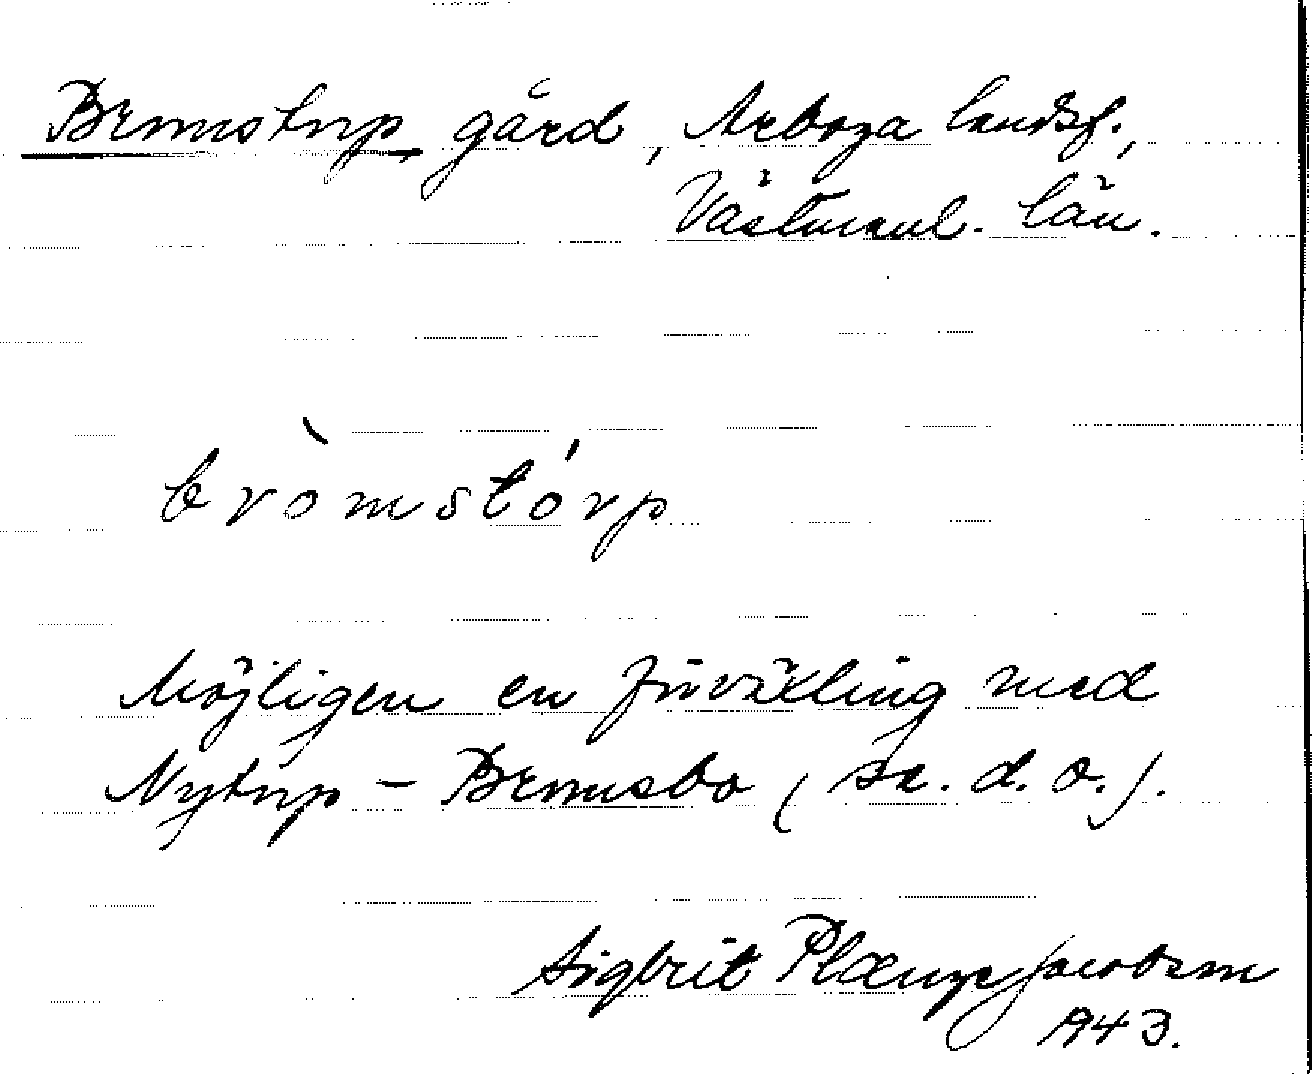 Bromstorp gård, Arboga landsf.,
Västmanl. län.
bròmstórp
Möjligen en förväxling med
Nytorp - Bromsbo (se. d. o.).
Sigbrit Plænge Jacobson
1943.